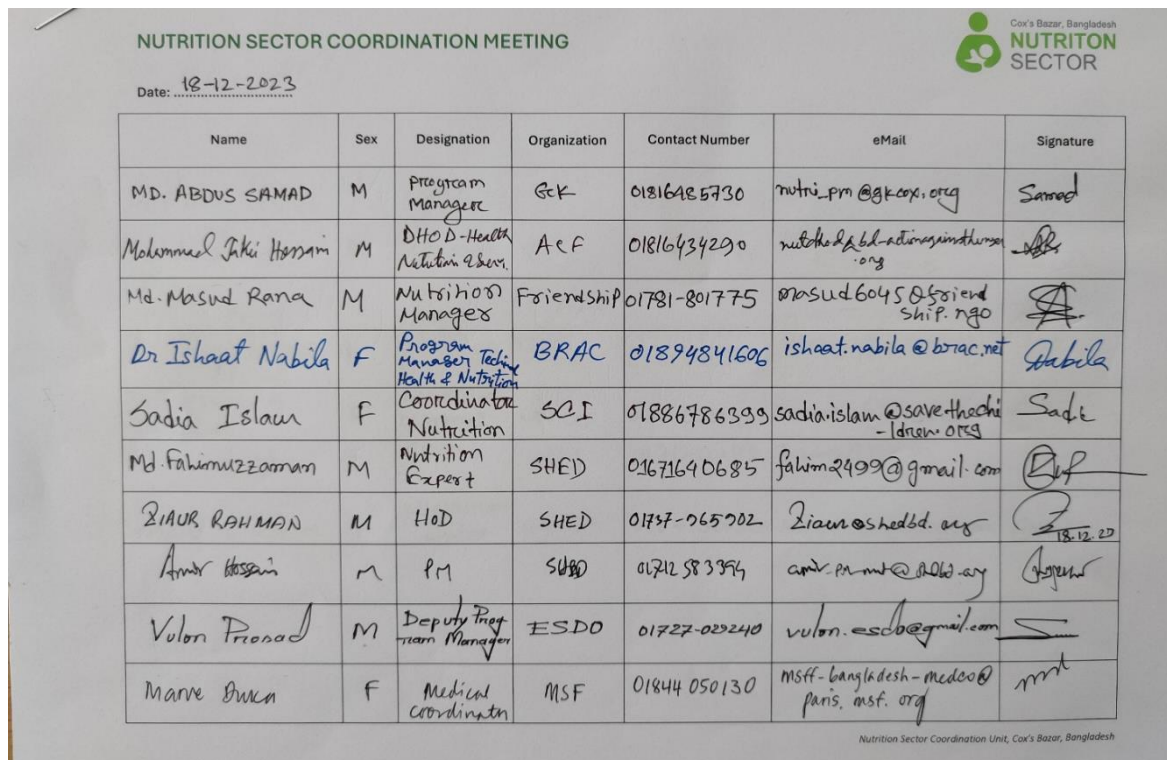 Cox's Bazar, Bangladesh
NUTRITON
SECTOR
NUTRITION SECTOR COORDINATION MEETING
Date: 18-12-2023
Name Sex Designation Organization Contact Number eMail Signature
MD. ABDUS SAMAD M Program Manager GK 01816485730 nutri_pm@gkcox.org Samad
Mohammed Hossain M DHOD-Health ACF 01816434290
.org
Md. Masud Rana M Nutrition Manager Friendship 01781-801775 masud6045@friend
ship.ngo
Dr Ishaat Nabila F Program Manager Health & Nutrition BRAC 01894841606 ishaat.nabila@brac.net Nabila
Sadia Islam F Coordinator Nutrition SCI 01886786399 sadia.islam@savethechi
-ldren.org
Md. Fahimuzzaman M Nutrition Expert SHED 01671640685 fahim2499@gmail.com
ZIAUR RAHMAN M HoD SHED 01737-965902 Ziaur@shedbd.org
18.12.23
Amir Hossain M PM
Vulon Prosad M Deputy Prog
ram Manager ESDO 01727-029240 vulon.esdo@gmail.com
F Medical coordinator MSF 01844 050130 msff-bangladesh-medco@
paris.msf.org
Nutrition Sector Coordination Unit, Cox's Bazar, Bangladesh